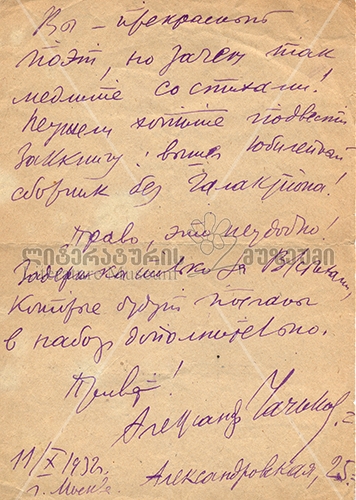 Вы – прекрасный
поэт, но зачем так
медлите со стихами!
Неужели хотите подвести
Заккнигу: вышел Юбилейный
сборник без Галактиона!
Право, это неудобно!
ლიტერატურის მუზეუმი
Задержка только за Вашими,
которые будут посланы
в набор дополнительно.
Привет!
Александр Чачиков.
11/X 1932г.
г. Москва
Александровская, 25.